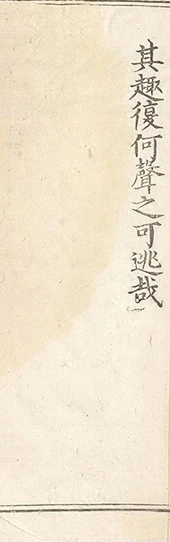 其趣復何聲之可逃哉」